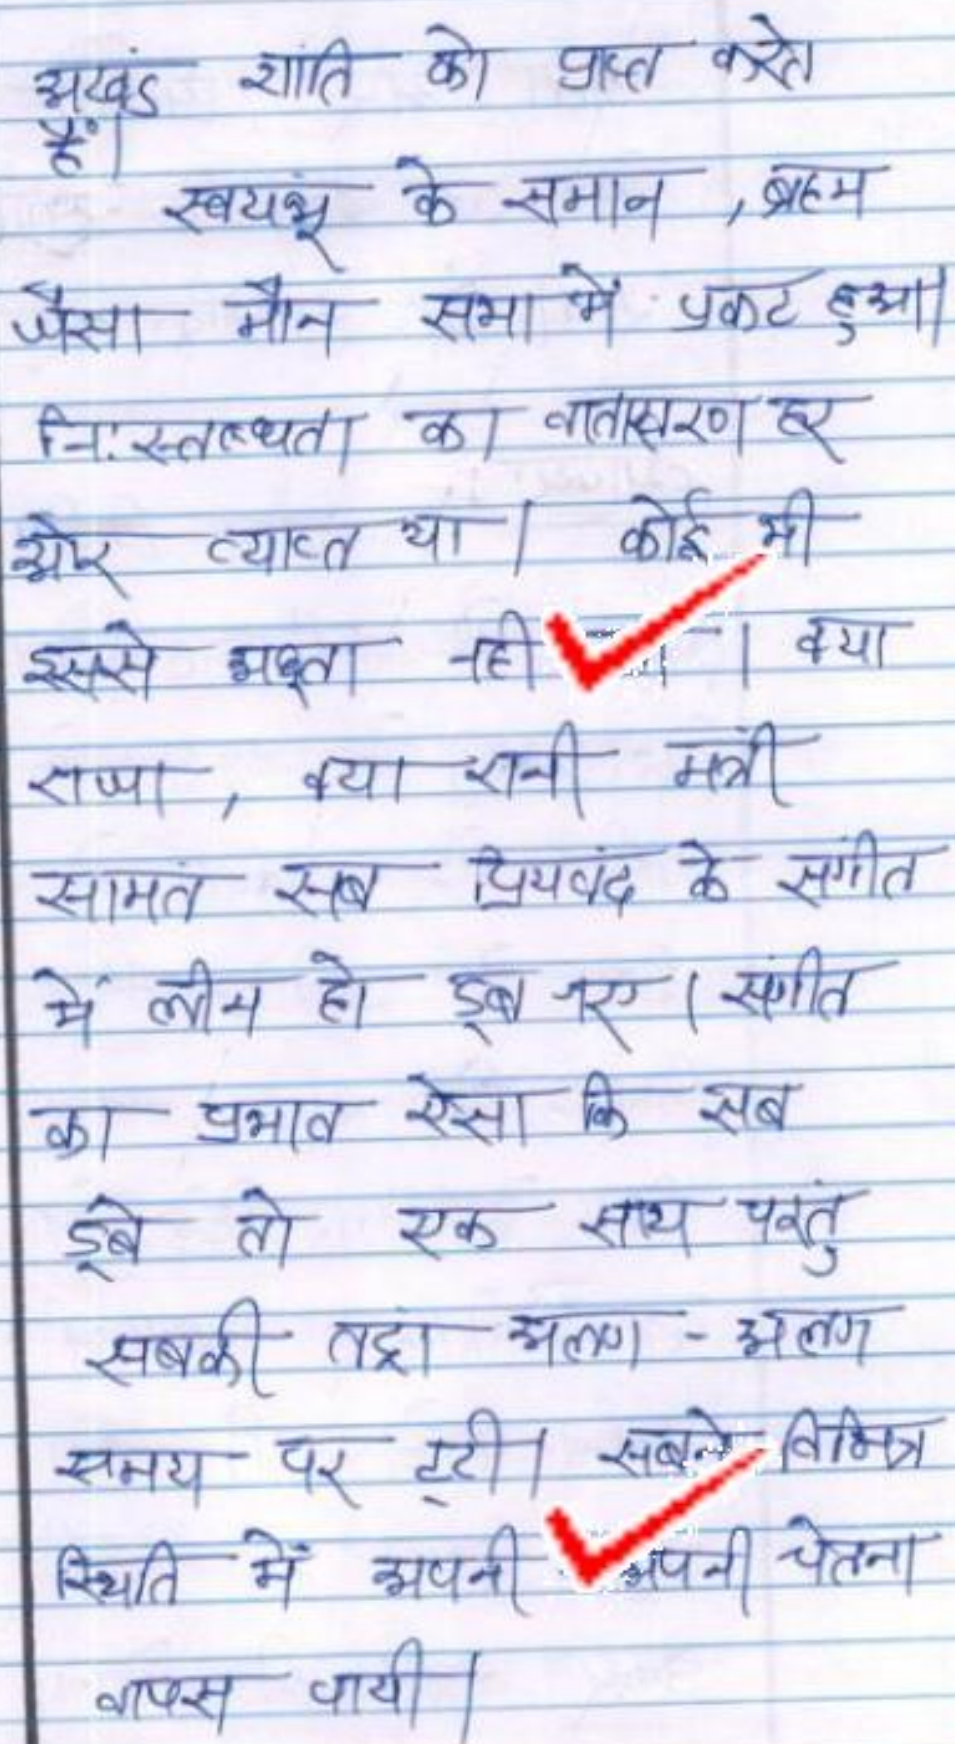 अखंड शांति को प्राप्त करते
हैं।
स्वयभूं के समान , ब्रह्म
जैसा मौन सभा में प्रकट हुआ।
नि:स्तब्धता का वातावरण हर
ओर व्याप्त था। कोई भी
इससे अछूता नही । क्या
राजा , क्या रानी मंत्री
सामंत सब प्रियवंद के संगीत
में लीन हो डूब गए। संगीत
का प्रभाव ऐसा कि सब
डूबे तो एक साथ परंतु
सबकी तंद्रा अलग - अलग
समय पर टूटी। सबने विभिन्न
स्थिति में अपनी अपनी चेतना
वापस पायी।